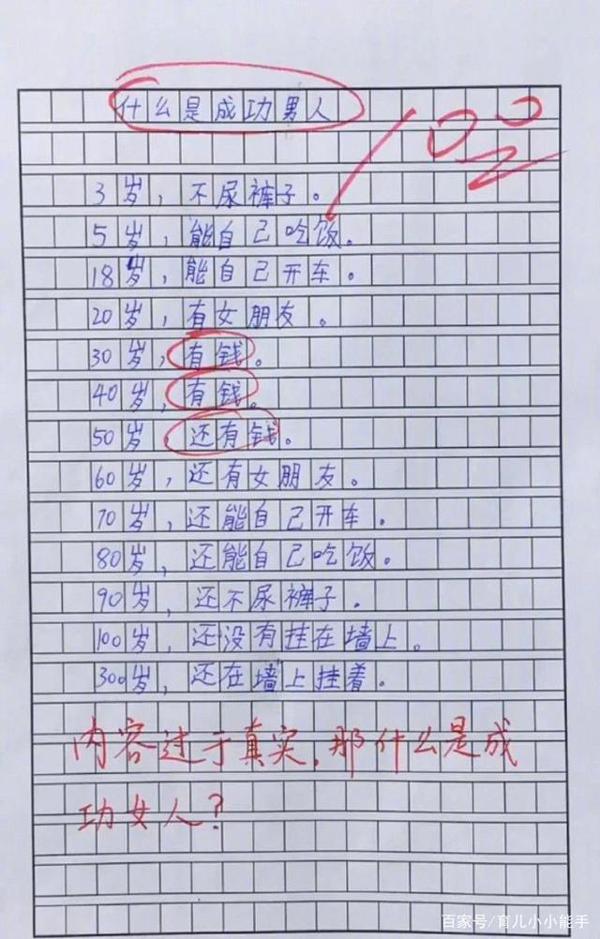 什么是成功男人
100
3岁，不尿裤子。
5岁，能自己吃饭。
18岁，能自己开车。
20岁，有女朋友。
30岁，有钱。
40岁，有钱。
50岁，还有钱。
60岁，还有女朋友。
70岁，还能自己开车。
80岁，还能自己吃饭。
90岁，还不尿裤子。
100岁，还没有挂在墙上。
300岁，还在墙上挂着。
内容过于真实，那什么是成
功女人？
百家号/育儿小小能手